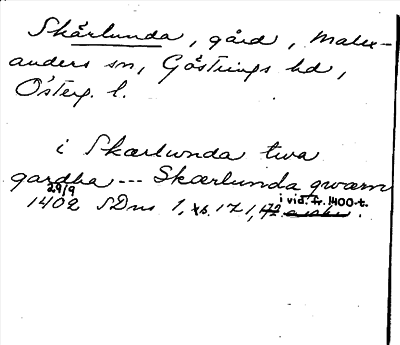 Skårlunda, gård, Malex-
anders sn, Göstrings hd,
Österg. l.
i Skærlunda twa
gardha --- Skærlunda qwærn
29/9
1402 SDns 1, s. 171, 172 i vid. fr. 1400-t.